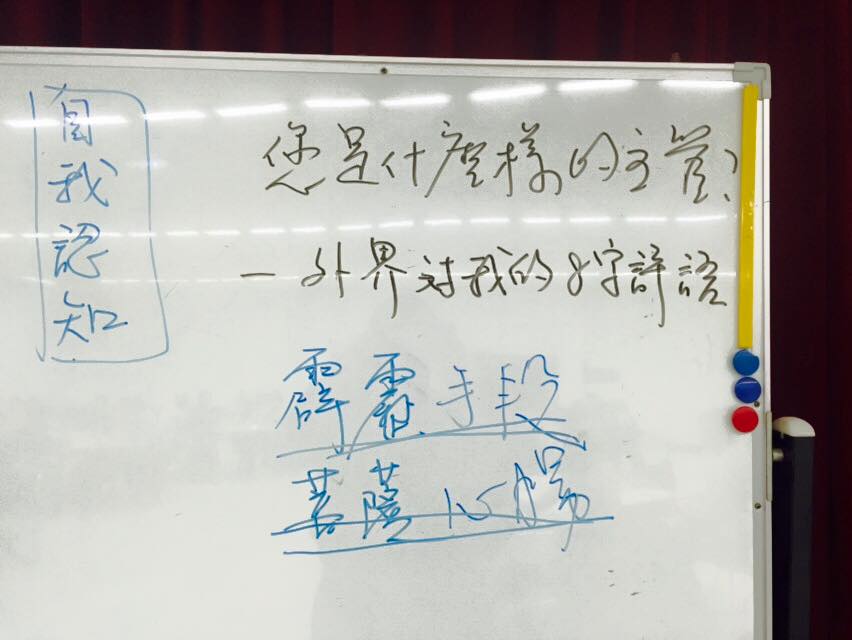 自我認知
您是什麼樣的主管?
一外界对我的8字評語
霹靂手段
菩薩心腸